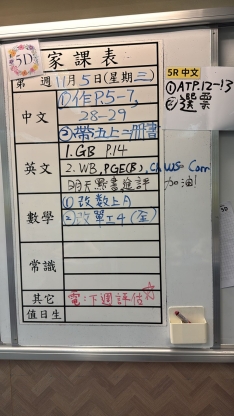 5D
家課表
第 週 11月5日(星期三)
中文
①作P.5-7,
28-29
②帶五上一冊書
英文
1. GB P.14
2. WB, PGE(B), Ch WS Corr
明天默書進評 加油!
數學
① 改數上A
② 改單元4(全)
常識
其它
電:下週評估☆
值日生
5R 中文
①ATP.12-13
②選票